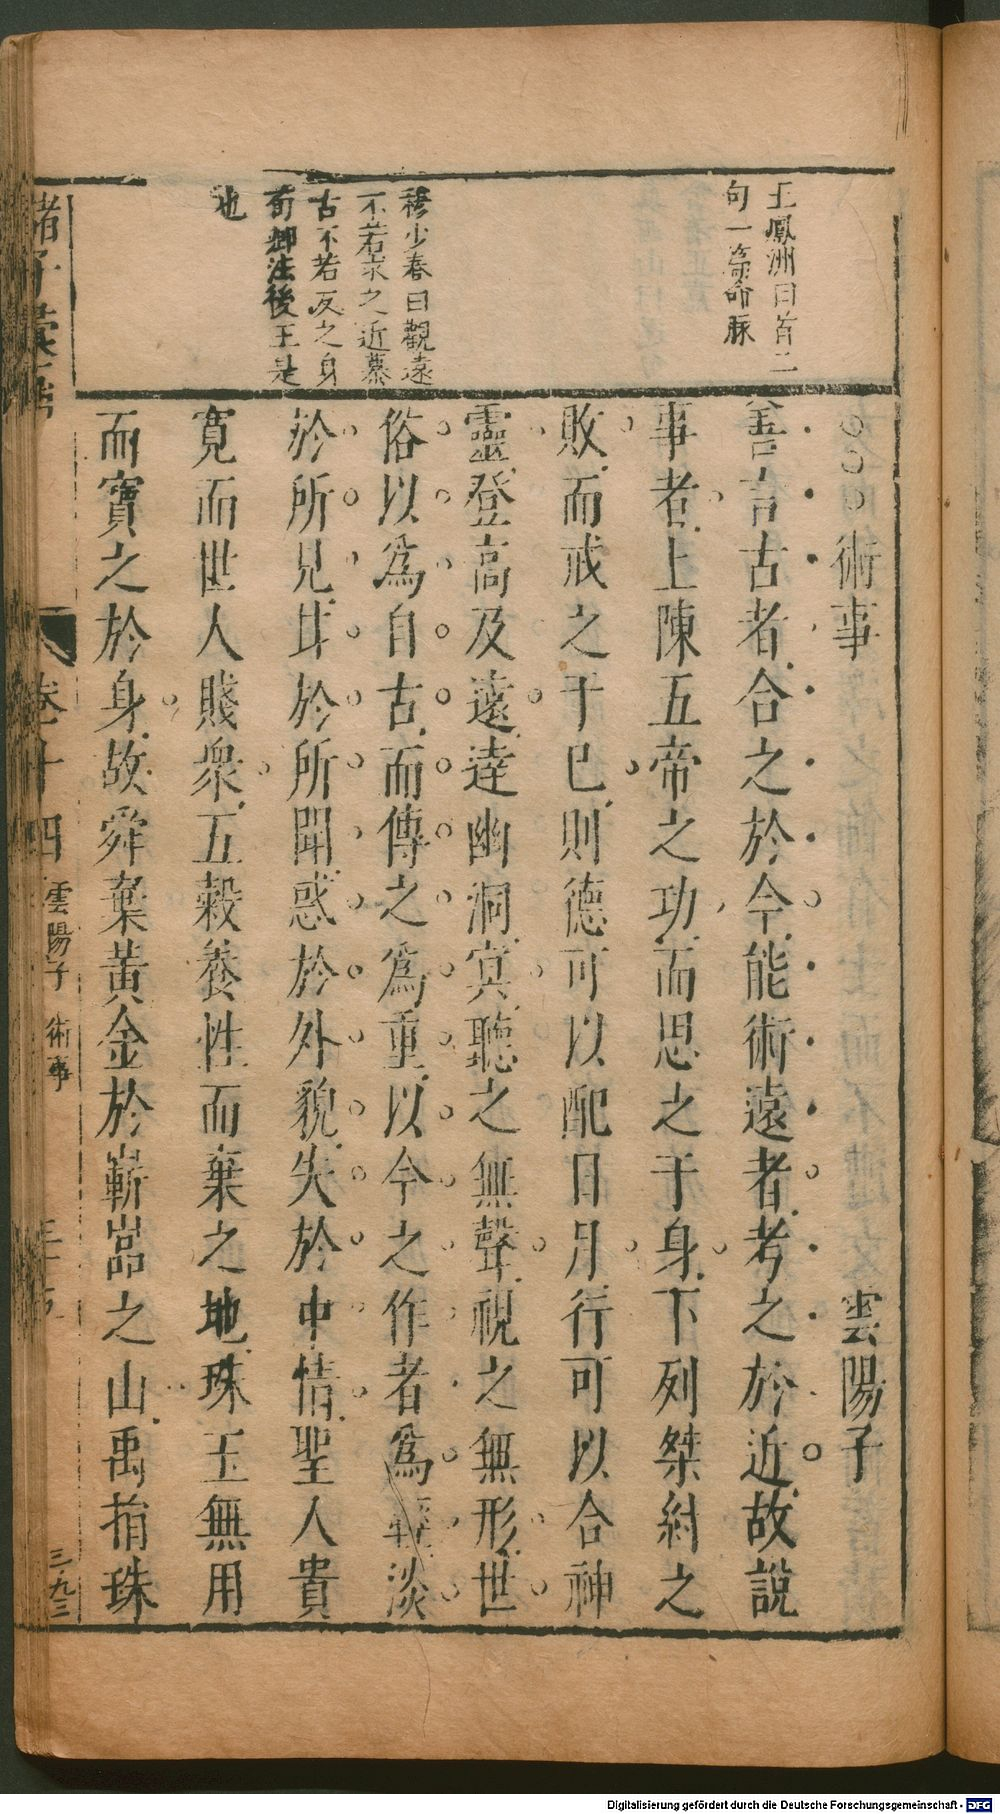 王鳳洲曰首二
句一篇命脉
穆少春曰觀遠
不若求之近慕
古不若反之身
荀卿法後王是
也
○○○術事 雲陽子
善言古者合之於今能術遠者考之於近故說
事者上陳五帝之功而思之于身下列桀紂之
敗而戒之于巳則德可以配日月行可以合神
靈登高及遠達幽洞冥聽之無聲視之無形世
俗以為自古而傳之為重以今之作者為輕淡
於所見甘於所聞惑於外貌失於中情聖人貴
寬而世人賤衆五穀養性而棄之地珠玉無用
而寶之於身故舜棄黃金於嶄嵓之山禹捐珠
諸子彙
卷十四 雲陽子 術事
三九二
Digitalisierung gefördert durch die Deutsche Forschungsgemeinschaft - DFG